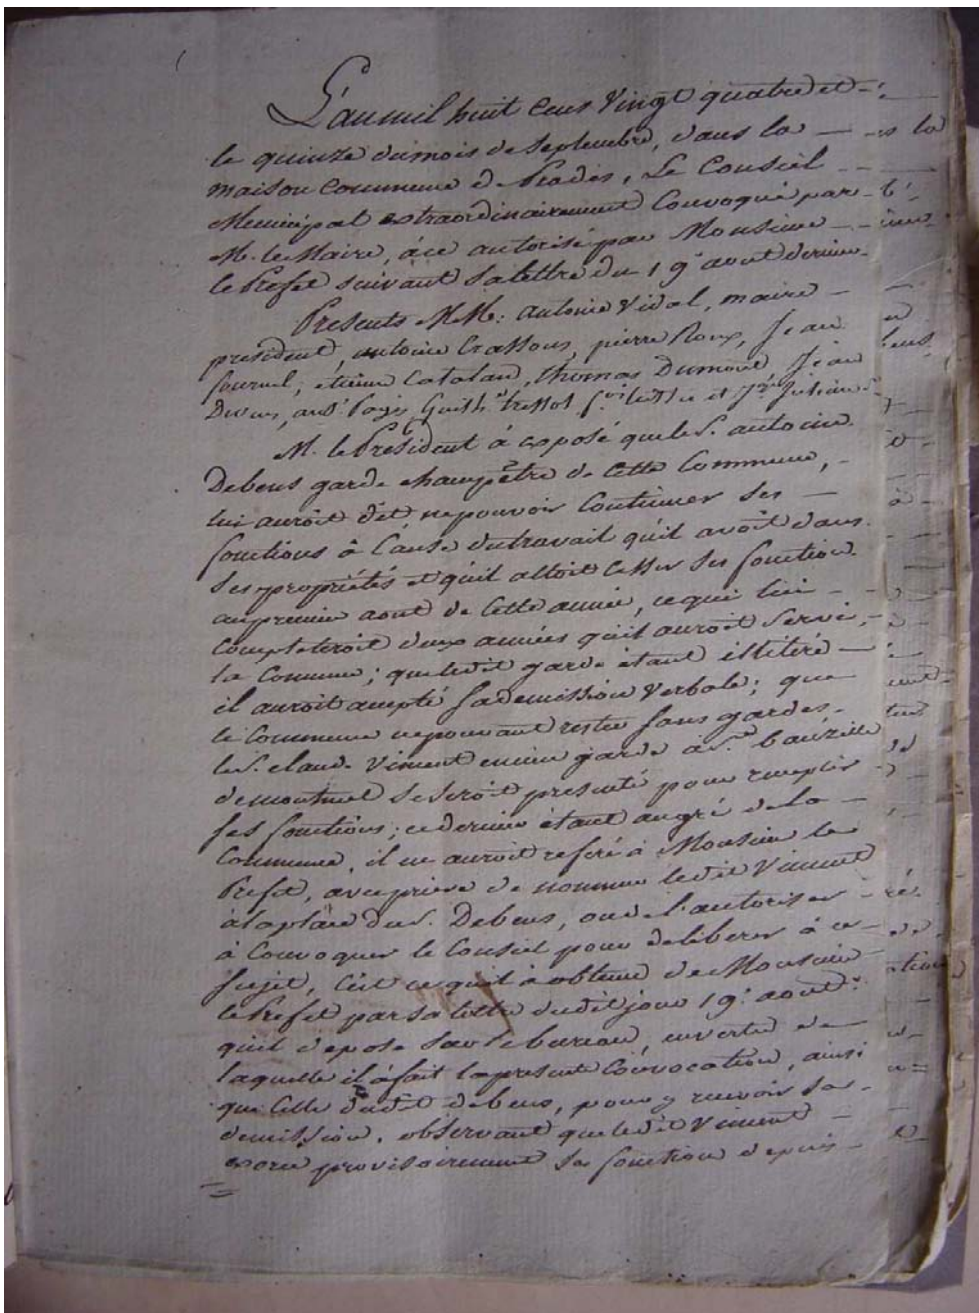 L'an mil huit cens vingt quatre et
le quinze du mois de septembre, dans la
maison commune de Prades, Le Conseil
Municipal extraordinairement Convoqué par
M. le Maire, à ce autorisé par Monsieur
le Prefet suivant sa lettre du 19e aout dernier
Presents MM: antoine Vidal, maire
president, antoine Crassous, pierre Roux, Jean
Fournel, etienne Catalan, thomas Dumont, Jean
M. le President à exposé que le S. antoine
Debens garde champêtre de cette Commune,
lui auroit dit ne pouvoir Continuer ses
fonctions à Cause du travail qu'il avoit dans
ses propriétés et qu'il alloit Cesser ses fonction
au premier aout de Cette année, ce qui lui
Completeroit deux années qu'il auroit servi
la Commune; que ledit garde étant illitéré
il auroit accepté sa demission Verbale; que
la Commune ne pouvant rester sans gardes
le S. claude Viment ancien garde à St bauzille
de montmel se seroit presenté pour remplir
ses fonctions; ce dernier étant au gré de la
Commune, il en auroit referé à Monsieur le
Prefet, avec priere de nommer ledit Viment
à la place du S. Debens, ou de l'autoriser
à Convoquer le Conseil pour deliberer à ce
sujet, C'est ce qu'il à obtenu de Monsieur
le Prefet par sa lettre dudit jour 19e aout
qu'il depose sur le bureau, en vertu de
laquelle il à fait la presente Convocation, ainsi
que Celle dudit debens, pour y recevoir sa
demission, observant que ledit Viment
exerce provisoirement ses fonction depuis